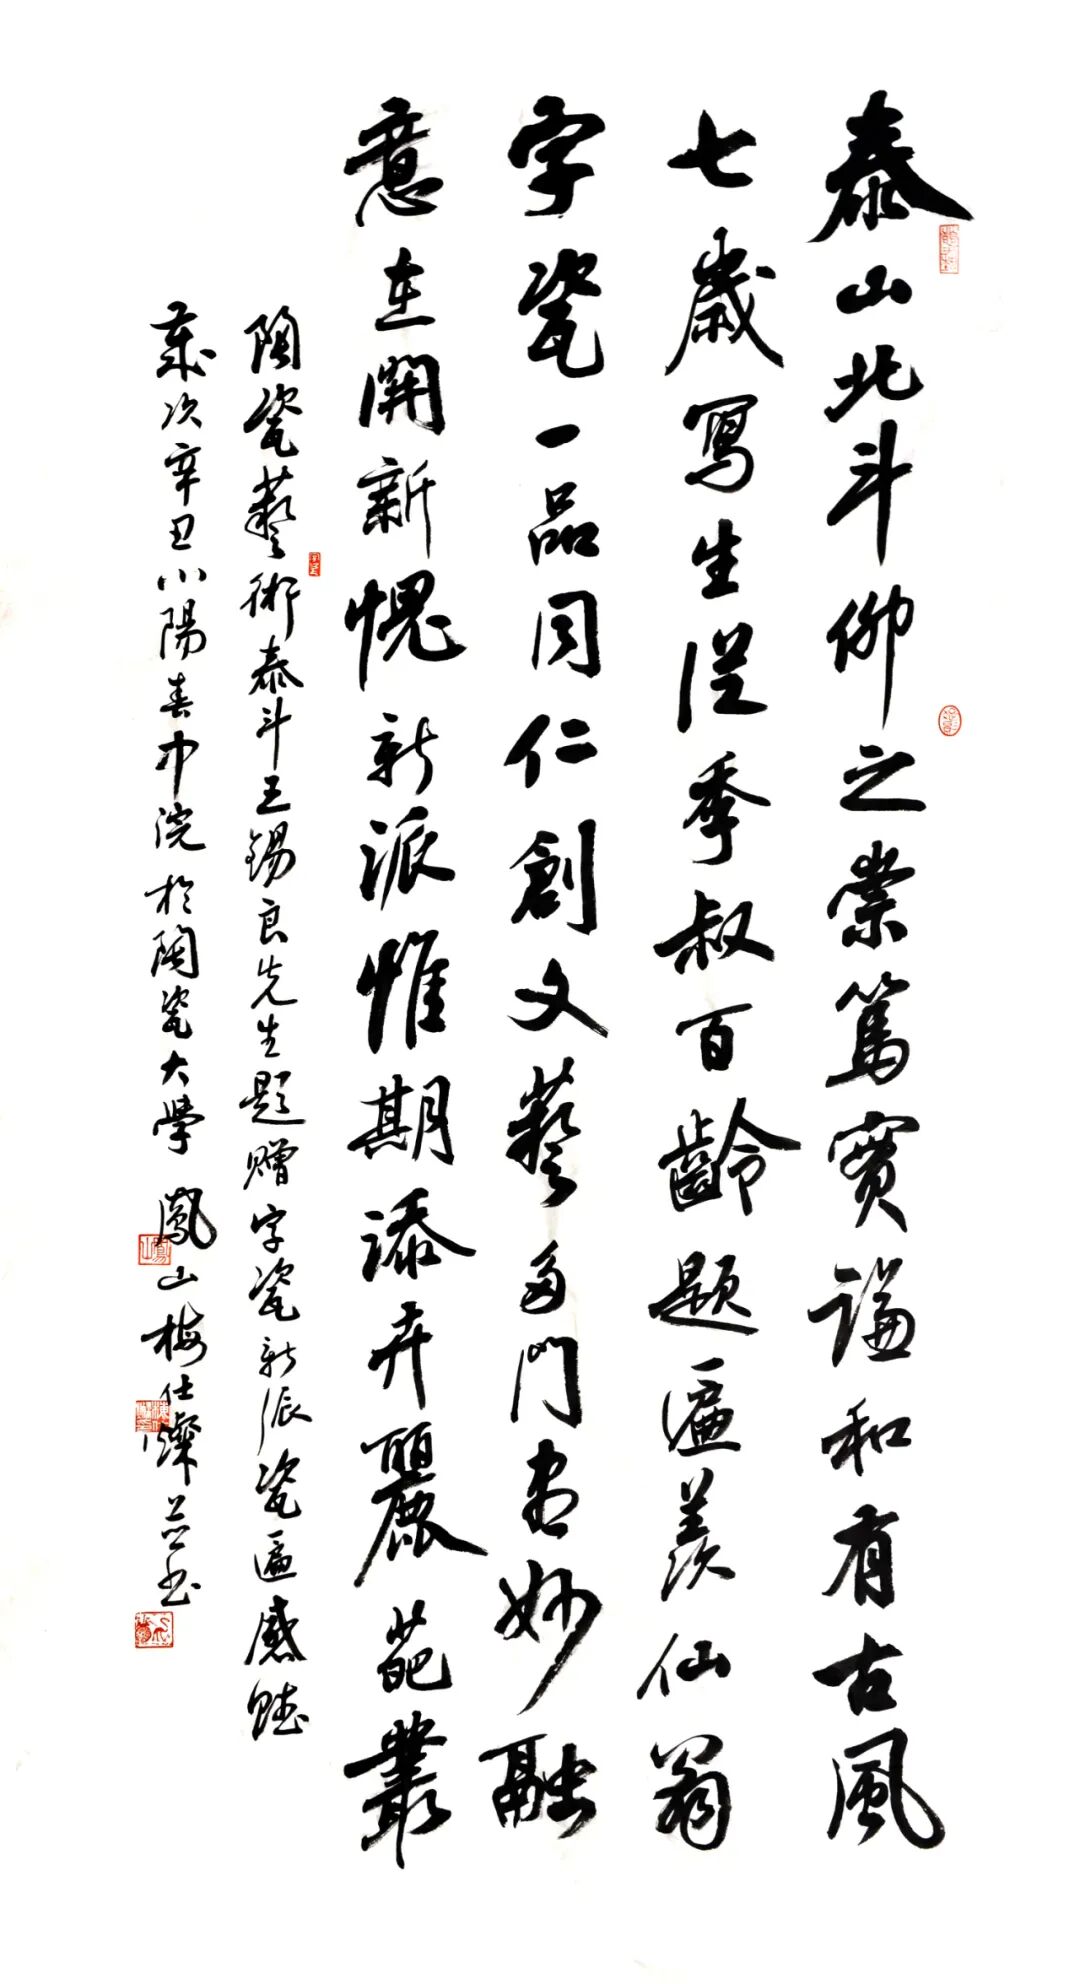 泰山北斗仰之崇篤實謙和有古風
七歲寫生從季叔百齡題匾羨仙翁
字瓷一品同仁創文藝多門書妙融
意在開新愧新派惟期添卉麗葩叢
陶瓷藝術泰斗王錫良先生題贈字瓷新派瓷匾感賦
歲次辛丑小陽春中浣於陶瓷大學 鳳山梅仕燦並书